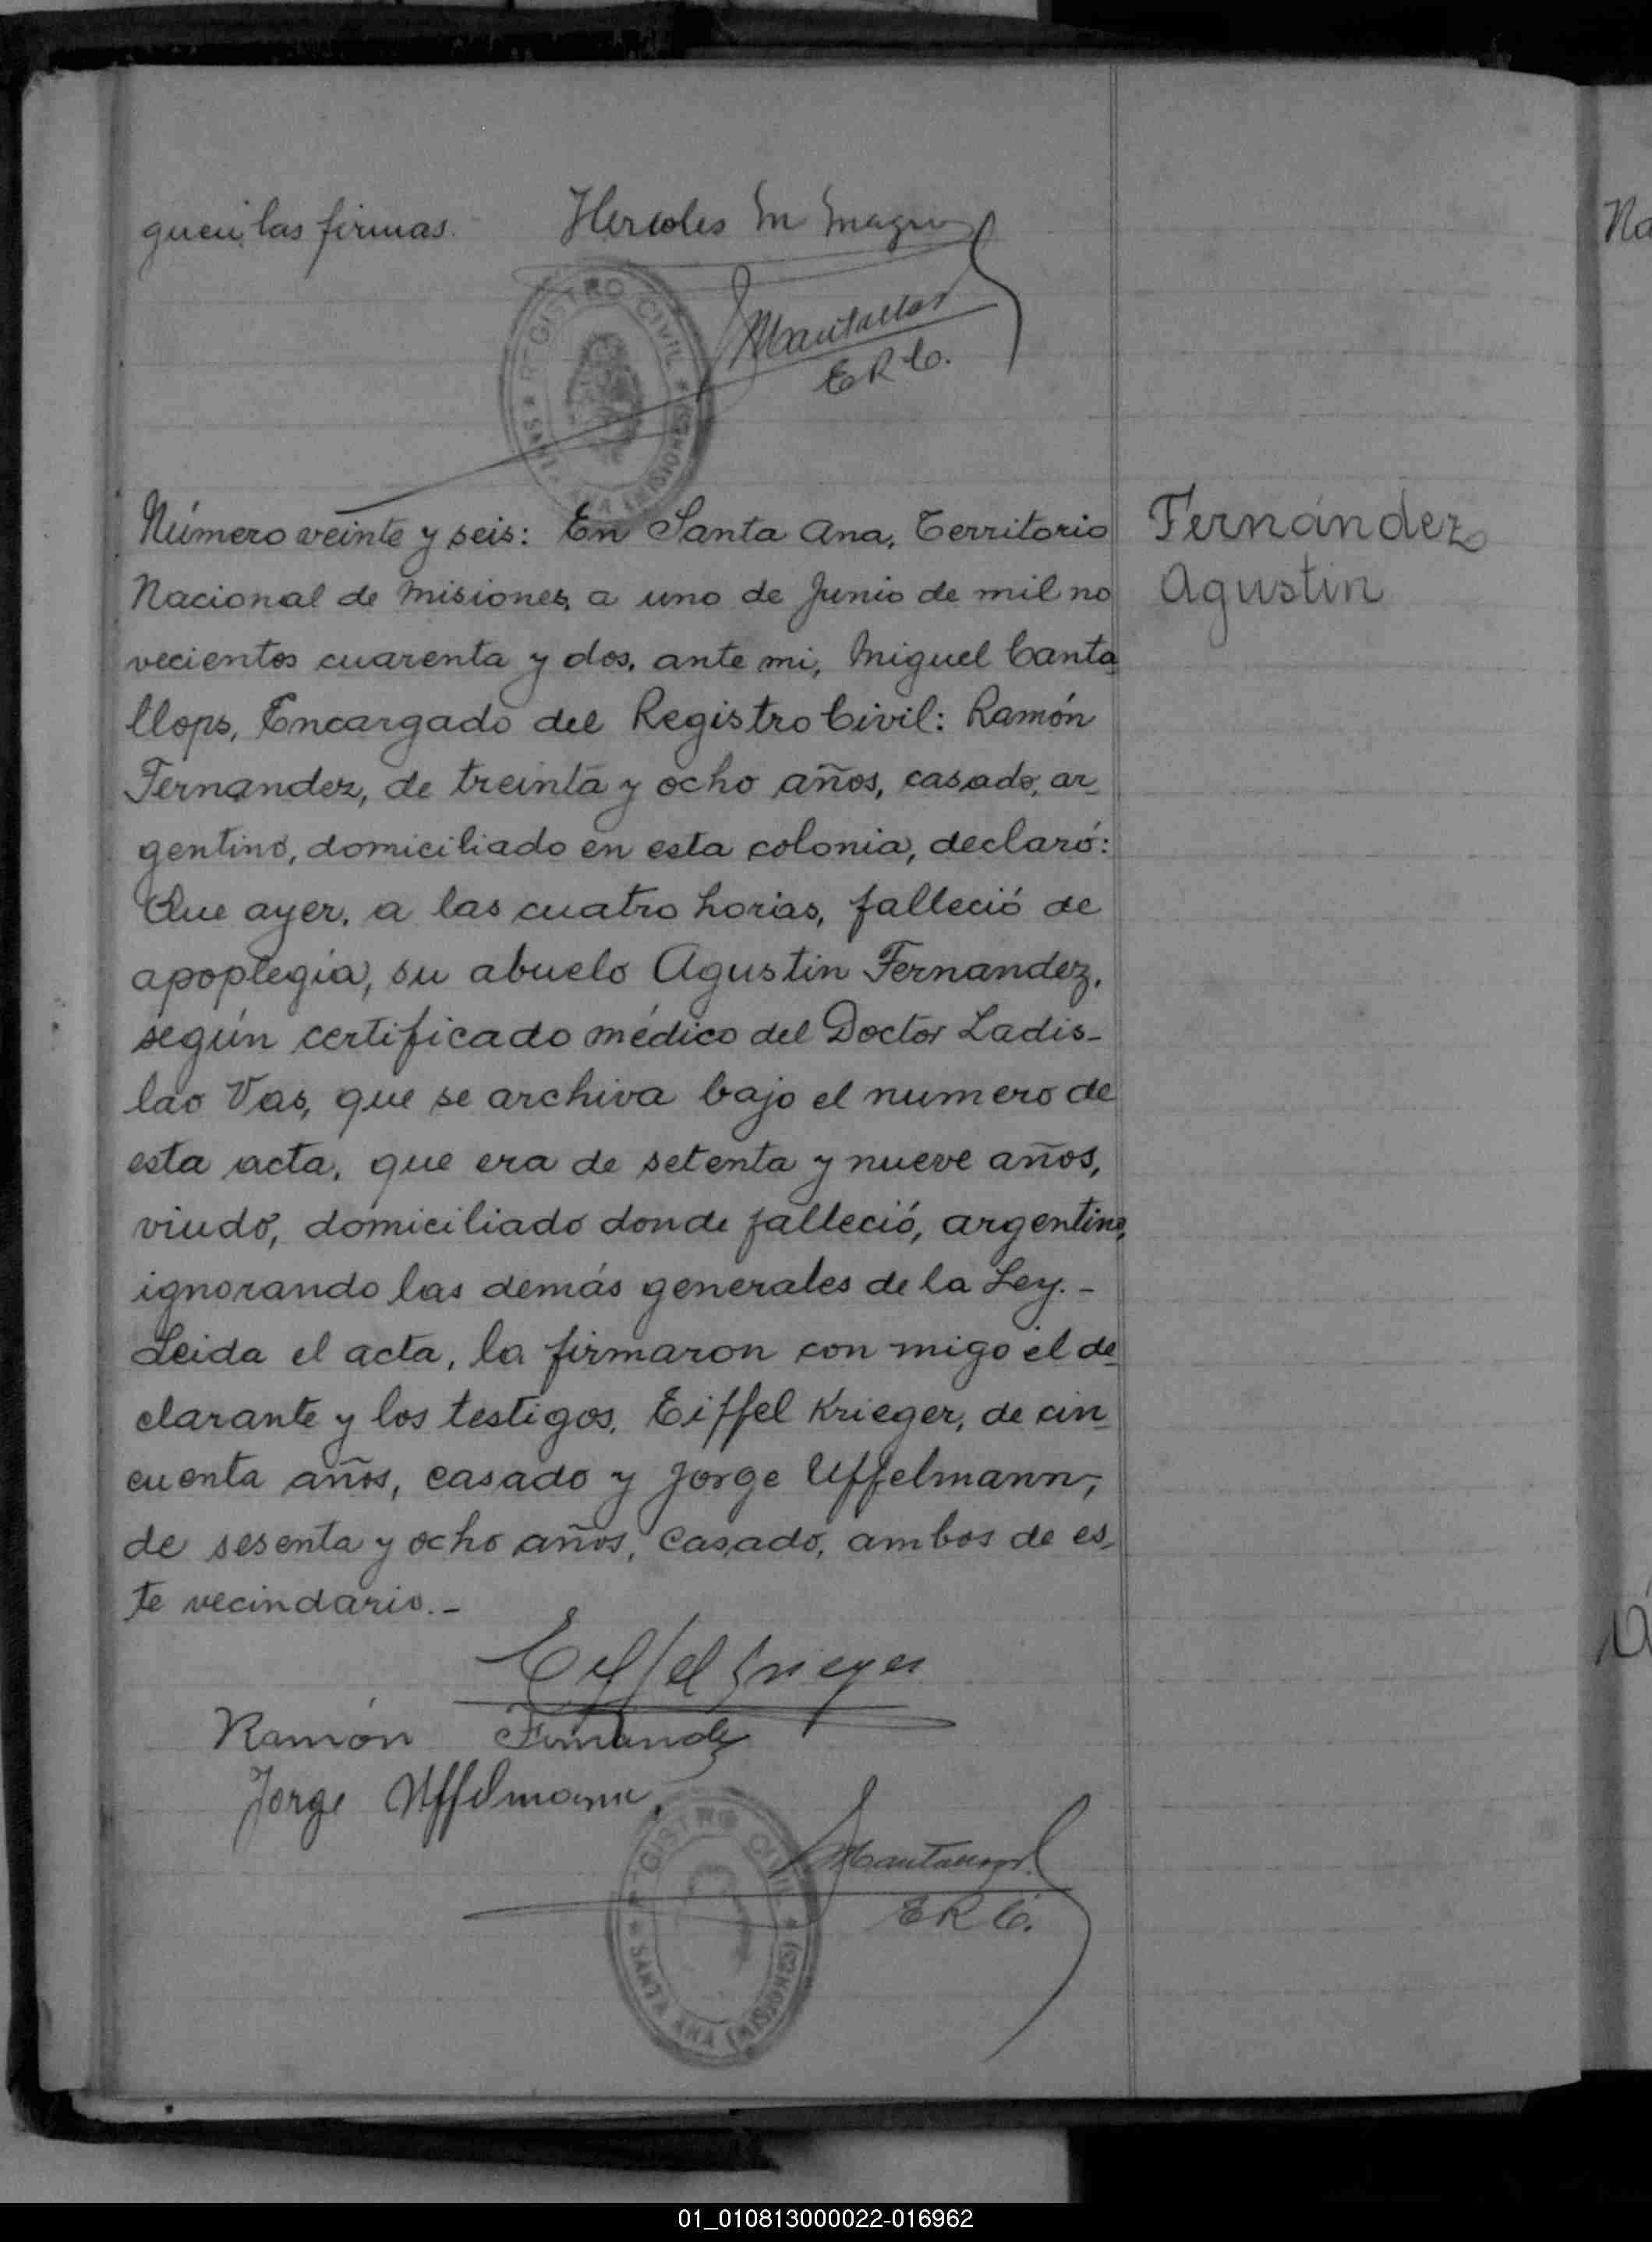 guen las firmas. Hercoles M
REGISTRO CIVIL
SANTA ANA (MISIONES)
E R C.
Número veinte y seis: En Santa Ana, Territorio
Nacional de Misiones, a uno de Junio de mil no
vecientos cuarenta y dos, ante mi, Miguel Canta
llops, Encargado del Registro Civil: Ramón
Fernandez, de treinta y ocho años, casado, ar
gentino, domiciliado en esta colonia, declaró:
Que ayer, a las cuatro horias, falleció de
apoplegia, su abuelo Agustin Fernandez,
según certificado médico del Doctor Ladis-
lao Vas, que se archiva bajo el numero de
esta acta, que era de setenta y nueve años,
viudo, domiciliado donde falleció, argentino,
ignorando las demás generales de la Ley.-
Leida el acta, la firmaron con migo el de
clarante y los testigos, Eiffel Krieger, de cin
cuenta años, casado y Jorge Uffelmann,
de sesenta y ocho años, casado, ambos de es
te vecindario.-
Fernández
Agustin
Eiffel Krieger
Ramón Fernandez
Jorge Uffelmann
REGISTRO CIVIL
SANTA ANA (MISIONES)
E R C.
Na
01_010813000022-016962